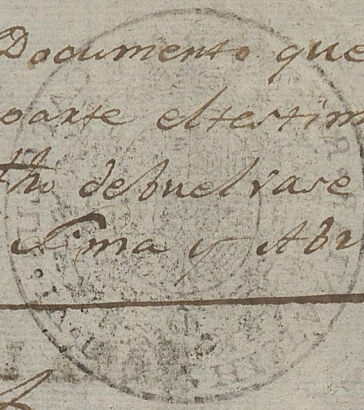 Documento que
parte el testim
fho debuelvase
Lima y Abr